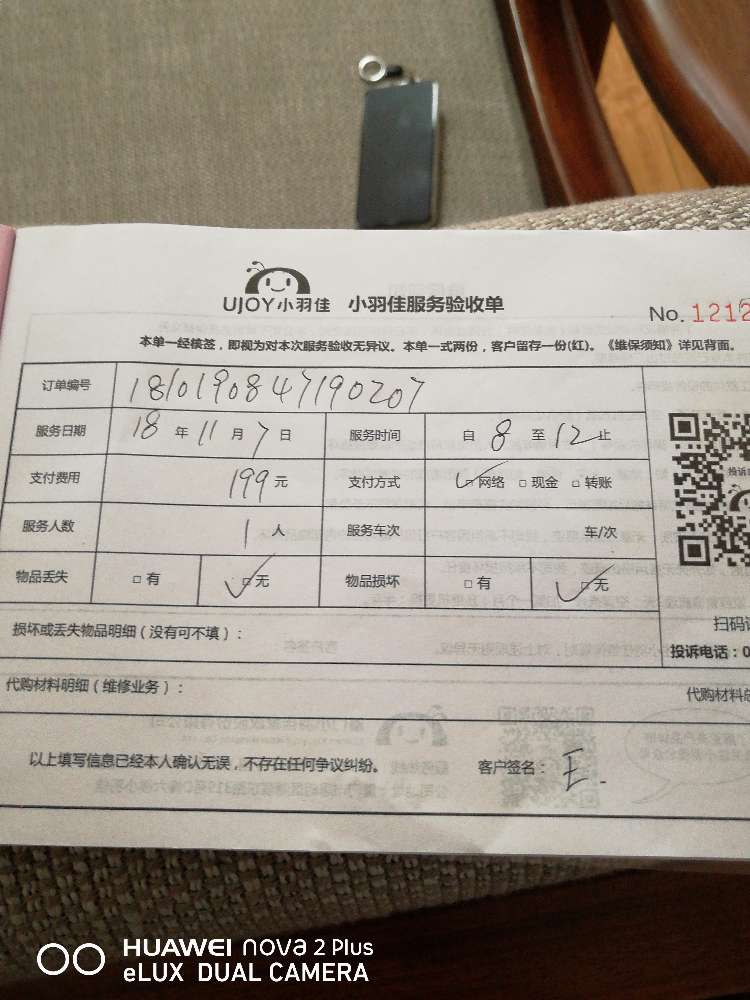 UJOY小羽佳 小羽佳服务验收单
No. 1212
本单一经核签，即视为对本次服务验收无异议。本单一式两份，客户留存一份(红)。《维保须知》详见背面。
订单编号 1810190847190207
服务日期 18 年 11 月 7 日 服务时间 自 8 至 12 止
支付费用 199 元 支付方式 ☑ 网络 □ 现金 □ 转账
服务人数 1 人 服务车次 车/次
物品丢失 □ 有 ☑ 无 物品损坏 □ 有 ☑ 无
损坏或丢失物品明细（没有可不填）：
扫码
投诉电话：0
代购材料明细（维修业务）： 代购材料
以上填写信息已经本人确认无误，不存在任何争议纠纷。 客户签名：
HUAWEI nova 2 Plus
eLUX DUAL CAMERA